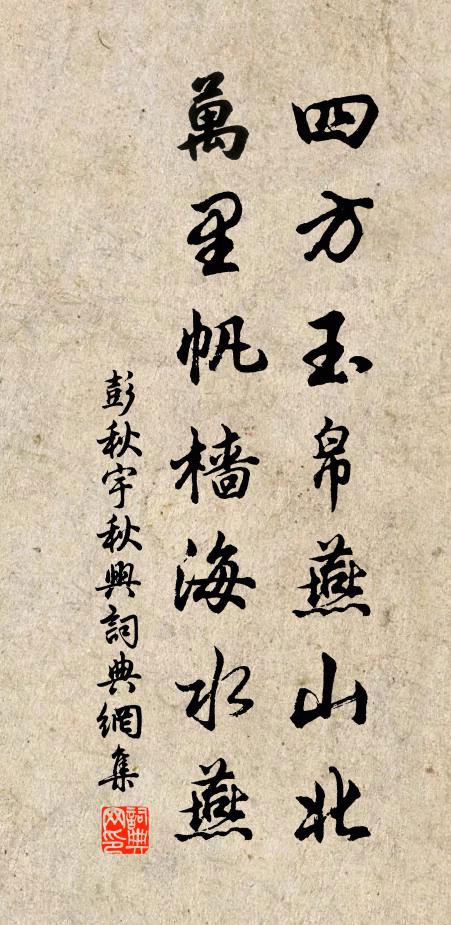 四方玉帛燕山北
萬里帆檣海水燕
彭秋宇秋興詞典網集
詞典网印